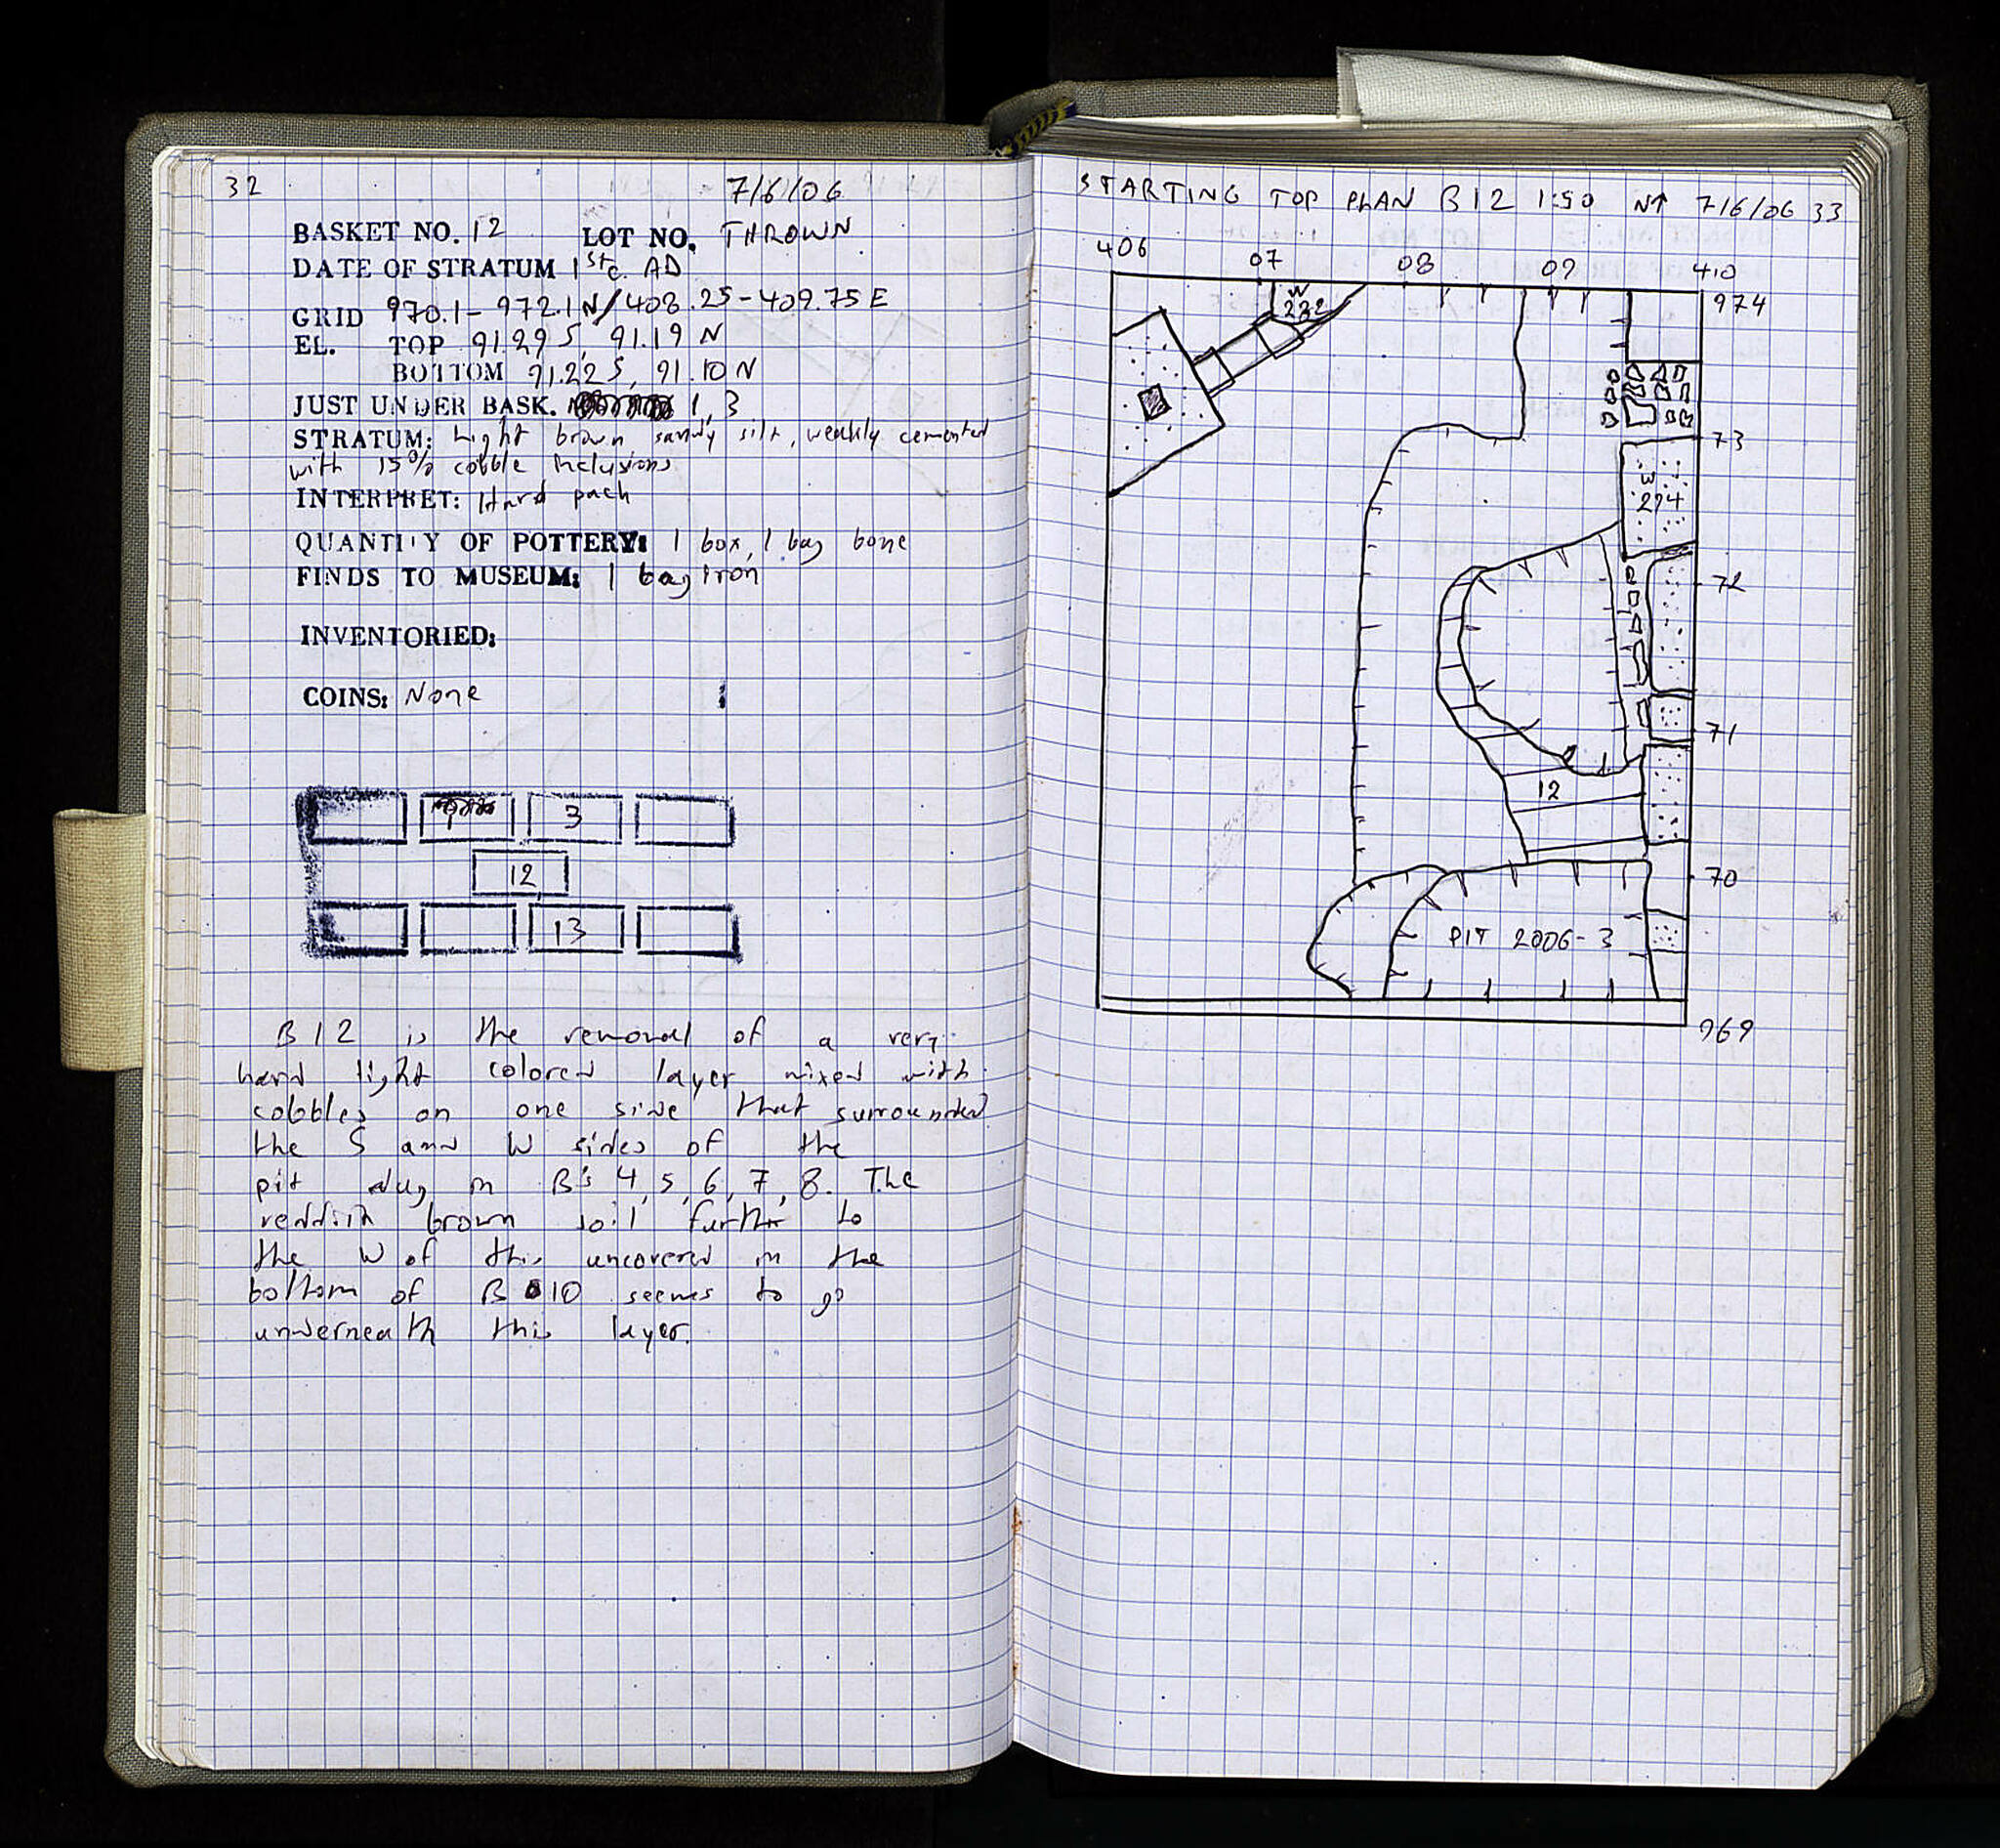 32
7/6/06
BASKET NO. 12 LOT NO. THROWN
DATE OF STRATUM 1st c. AD
GRID 970.1-972.1N/408.25-409.75E
EL. TOP 91.29 S, 91.19 N
BOTTOM 91.22 S, 91.10 N
JUST UNDER BASK. 1, 3
STRATUM: Light brown sandy silt, weakly cemented
with 15% cobble inclusions
INTERPRET: Hard pack
QUANTITY OF POTTERY: 1 box, 1 bag bone
FINDS TO MUSEUM: 1 bag iron
INVENTORIED:
COINS: None
3
12
13
B12 is the removal of a very
hard light colored layer mixed with
cobbles on one side that surrounded
the S and W sides of the
pit dug in B's 4, 5, 6, 7, 8. The
reddish brown soil further to
the W of this uncovered in the
bottom of B 10 seems to go
underneath this layer.
STARTING TOP PLAN B12 1:50 N↑ 7/6/06 33
406 07 08 09 410
974
W
232
73
W
274
72
71
12
70
PIT 2006-3
969